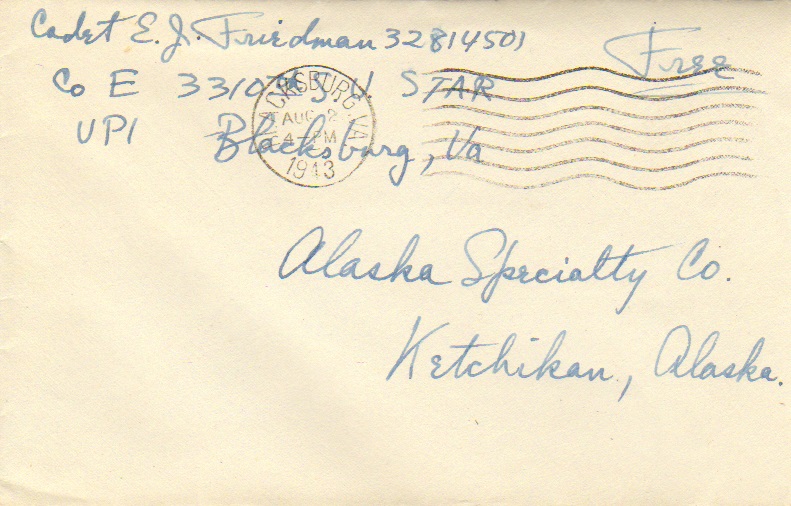 Cadet E. J. Friedman 32814501
Free
Co E 3310th S U STAR
VPI Blacksburg, Va
BLACKSBURG, VA.
AUG 2
4-PM
1943
Alaska Specialty Co.
Ketchikan, Alaska.